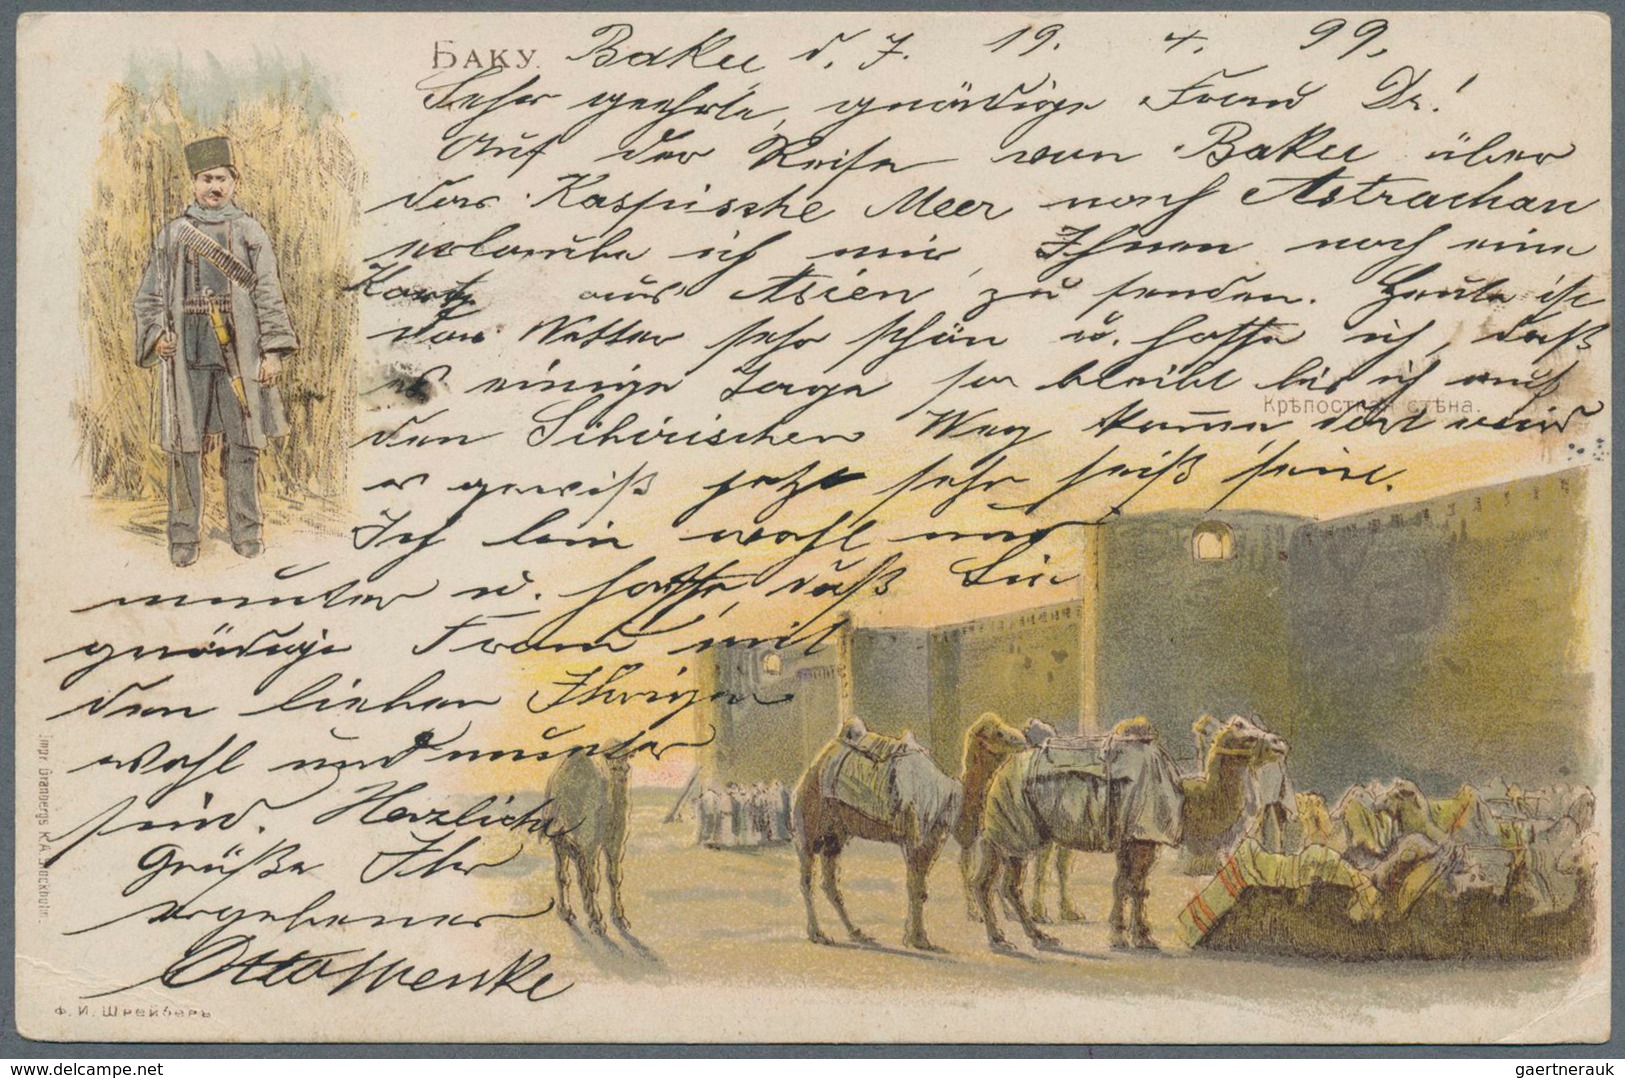 БАКУ. Baku d. 7. 19. 4. 99.
Sehr geehrte, gnädige Frau Dr.!
Auf der Reise von Baku über
das Kaspische Meer nach Astrachan
erlaube ich mir, Ihnen noch eine
Karte aus Asien zu senden. Heute ist
das Wetter sehr schön u. hoffe ich, daß
es einige Tage so bleibt bis ich auf
Крѣпостная стѣна.
den Sibirischen Weg komme dort wird
es gewiß jetzt sehr heiß sein.
Ich bin wohl und
munter u. hoffe, daß Sie
gnädige Frau mit
den lieben Ihrigen
wohl und munter
sind. Herzliche
Grüße Ihr
ergebener
Otto
Ф. И. Шрейберъ
Impr. Granbergs K.A. Stockholm.
gaertnerauk
delcampe.net